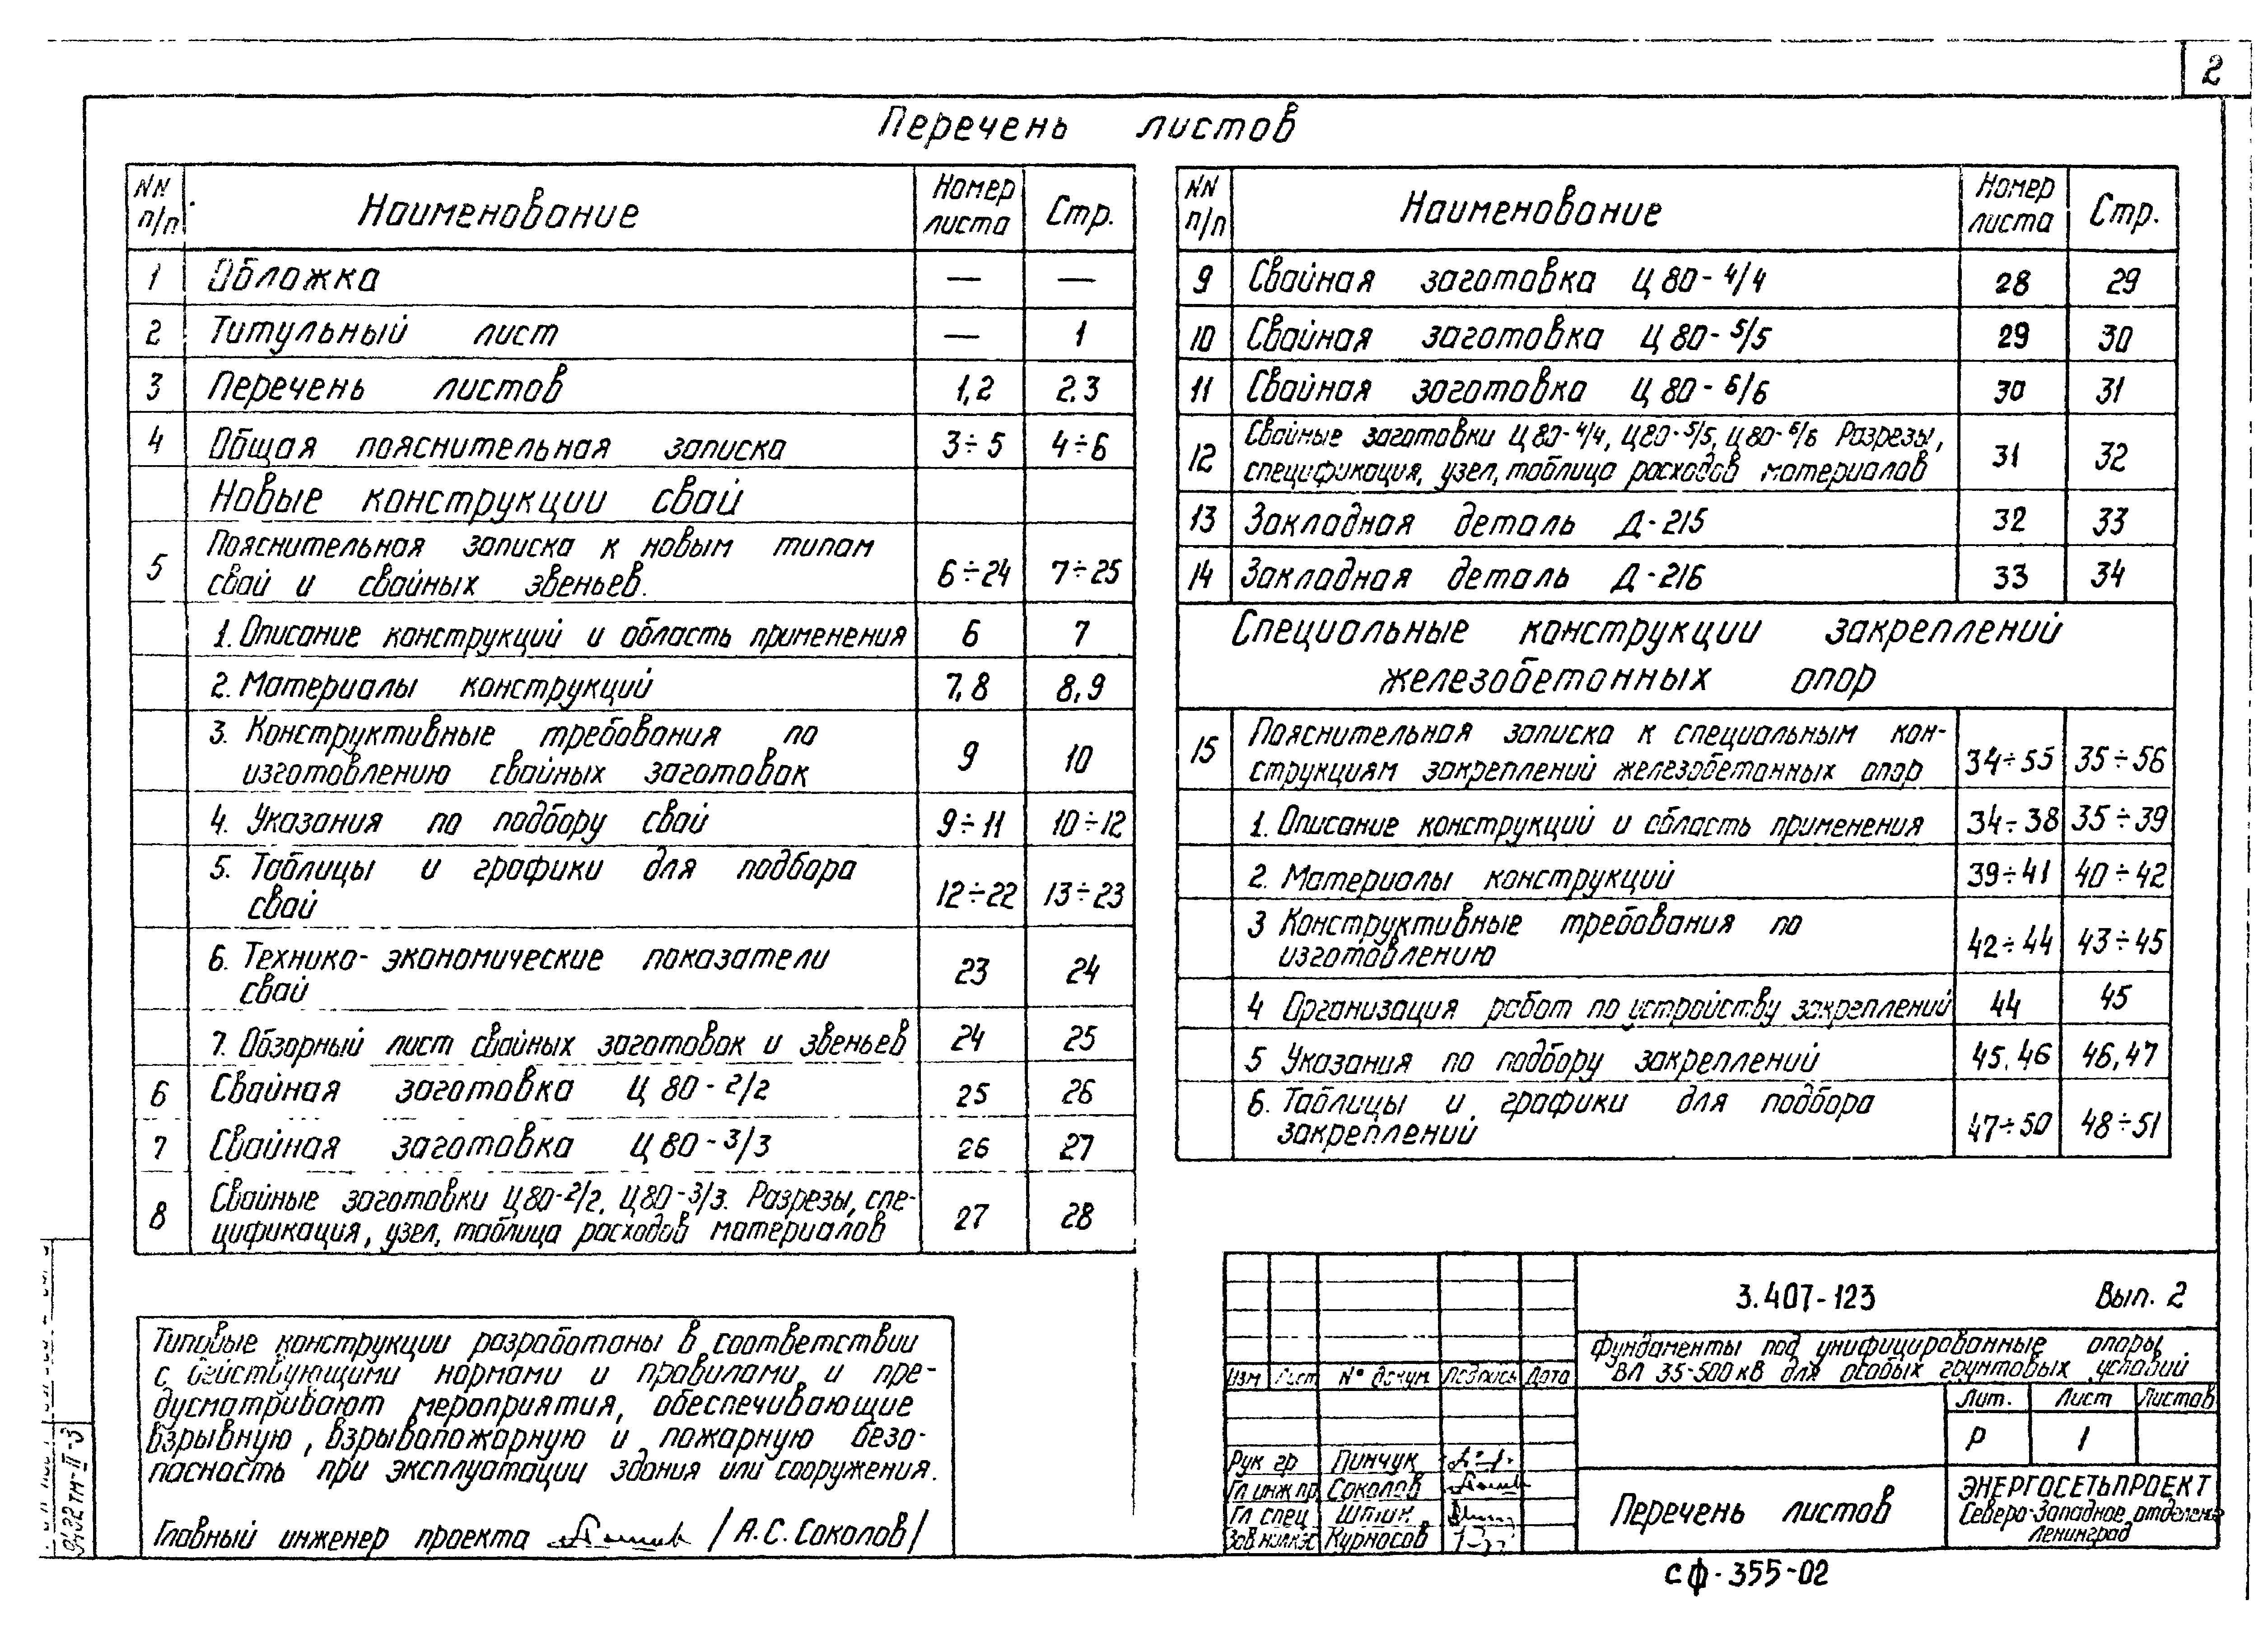 2
Перечень листов
NN п/п Наименование Номер листа Стр.
1 Обложка — —
2 Титульный лист — 1
3 Перечень листов 1,2 2.3
4 Общая пояснительная записка 3÷5 4÷6
Новые конструкции свай
5 Пояснительная записка к новым типам
свай и свайных звеньев. 6÷24 7÷25
1. Описание конструкций и область применения 6 7
2. Материалы конструкций 7,8 8,9
3. Конструктивные требования по
изготовлению свайных заготовок 9 10
4. Указания по подбору свай 9÷11 10÷12
5. Таблицы и графики для подбора
свай 12÷22 13÷23
6. Технико-экономические показатели
свай 23 24
7. Обзорный лист свайных заготовок и звеньев 24 25
6 Свайная заготовка Ц 80-2/2 25 26
7 Свайная заготовка Ц 80-3/3 26 27
8 Свайные заготовки Ц80-2/2, Ц80-3/3. Разрезы, спе-
цификация, узел, таблица расходов материалов 27 28
NN п/п Наименование Номер листа Стр.
9 Свайная заготовка Ц 80-4/4 28 29
10 Свайная заготовка Ц 80-5/5 29 30
11 Свайная заготовка Ц 80-6/6 30 31
12 Свайные заготовки Ц80-4/4, Ц80-5/5, Ц80-6/6 Разрезы,
спецификация, узел, таблица расходов материалов 31 32
13 Закладная деталь Д-215 32 33
14 Закладная деталь Д-216 33 34
Специальные конструкции закреплений
железобетонных опор
15 Пояснительная записка к специальным кон-
струкциям закреплений железобетонных опор 34÷55 35÷56
1. Описание конструкций и область применения 34÷38 35÷39
2. Материалы конструкций 39÷41 40÷42
3 Конструктивные требования по
изготовлению 42÷44 43÷45
4 Организация работ по устройству закреплений 44 45
5 Указания по подбору закреплений 45,46 46,47
6. Таблицы и графики для подбора
закреплений 47÷50 48÷51
Типовые конструкции разработаны в соответствии
с действующими нормами и правилами и пре-
дусматривают мероприятия, обеспечивающие
взрывную, взрывопожарную и пожарную безо-
пасность при эксплуатации здания или сооружения.
Главный инженер проекта /А.С. Соколов/
3.407-123 Вып. 2
Фундаменты под унифицированные опоры
ВЛ 35-500 кВ для особых грунтовых условий
Изм Лист № докум Подпись Дата
Лит. Лист Листов
Р 1
Рук гр Пинчук
Гл инж пр Соколов
Гл спец
Курносов
Перечень листов
ЭНЕРГОСЕТЬПРОЕКТ
Северо-Западное отделение
Ленинград
сф-355-02
9402 тм-II-3